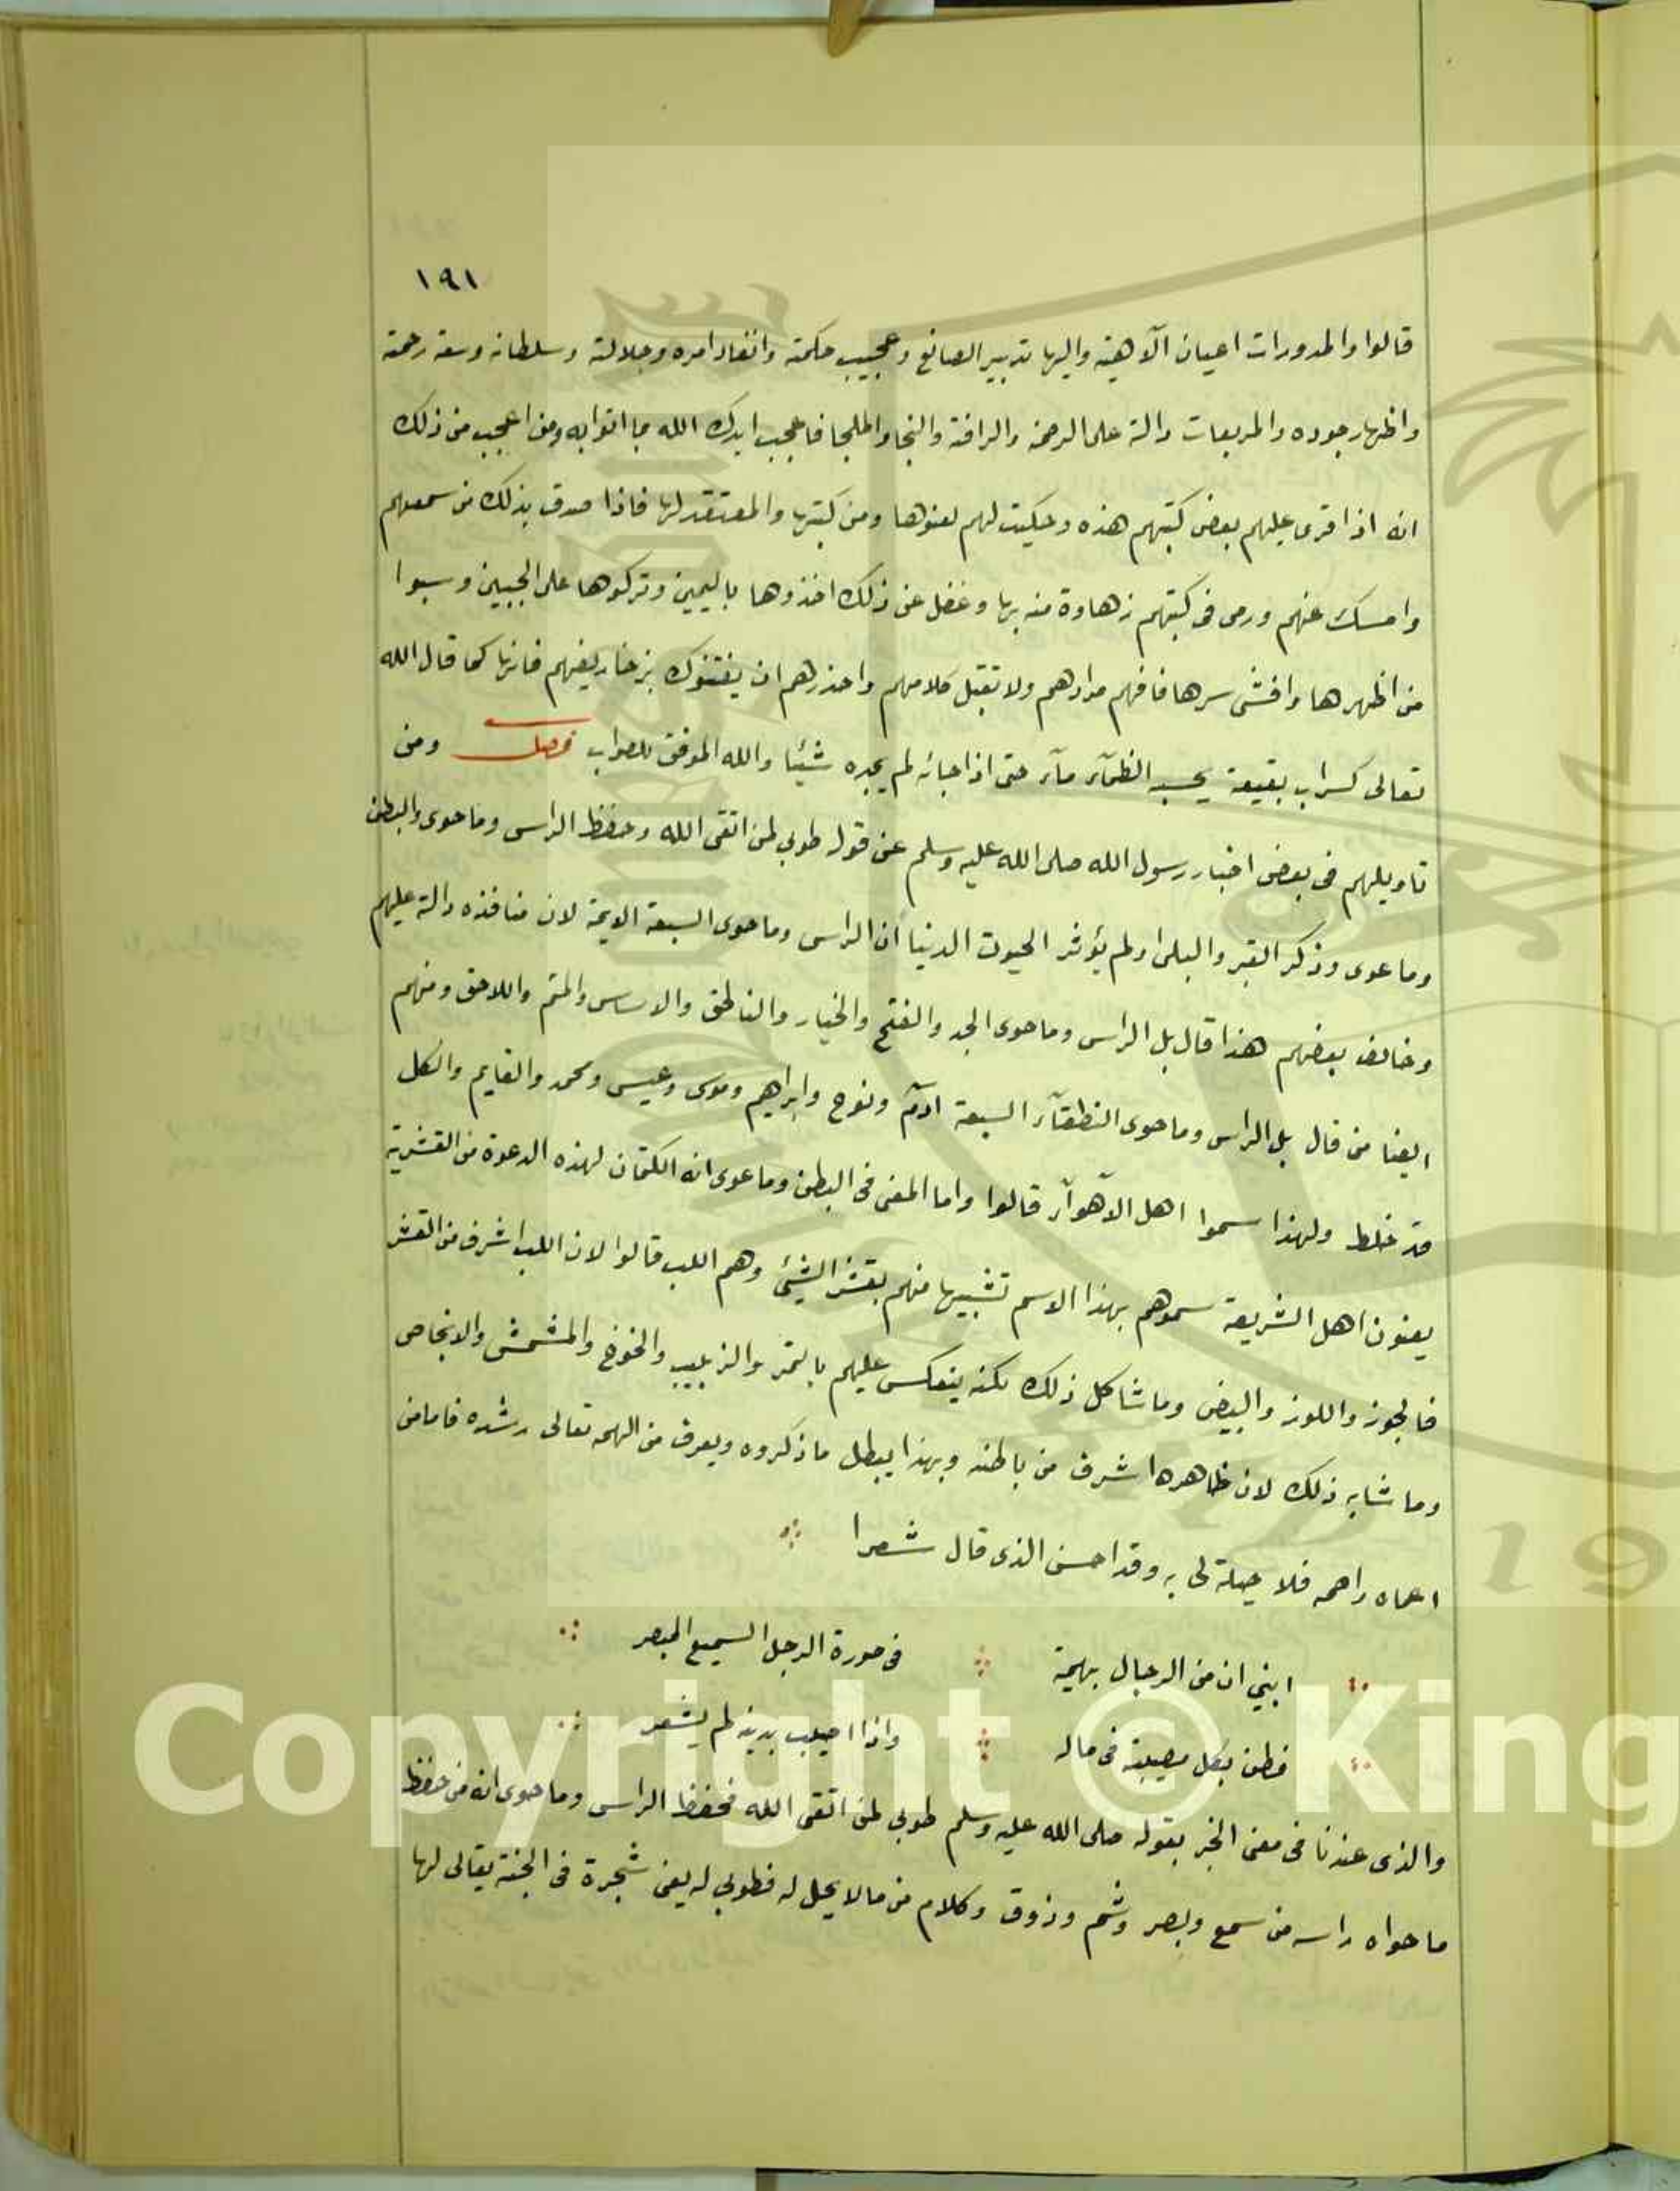 ١٩١
قالوا والمدورات اعيان الآهية واليها تدبير الصانع وعجيب حكمته وانفاد امره وجلالته وسلطانه وسعة رحمته
واظهار جوده والمربعات دالة على الرحمة والرافة والنجا والملجا فاعجب ايدك الله بما اتوا به ومن اعجب من ذلك
انه اذا قرى عليهم بعض كتبهم هذه وحكيت لهم لعنوها ومن كتبها والمعتقد لها فاذا صدق بذلك من سمعهم
وامسك عنهم ورمى فى كتبهم زهاوة منه بها وغفل عن ذلك اخذوها باليمين وتركوها على الجبين وسبوا
من اظهرها وافشى سرها فافهم مرادهم ولا تقبل كلامهم واحذرهم ان يفتنوك بزخاريفهم فانها كما قال الله
تعالى كسراب بقيعة يحسبه الظمآء مآء حتى اذا جائه لم يجده شيئا والله الموفق للصواب فصل ومن
تاويلهم فى بعض اخبار رسول الله صلى الله عليه وسلم عن قول طوبى لمن اتقى الله وحفظ الراس وما حوى والبطن
وما عوى وذكر القبر والبلى ولم يؤثر الحيوت الدنيا ان الراس وما حوى السبعة الايمة لان منافذه دالة عليهم
وخالف بعضهم هذا قال بل الراس وما حوى الجد والفتح والخيار والناطق والاساس والمتم واللاحق ومنهم
ايضا من قال بل الراس وما حوى النطقآء السبعة ادم ونوح وابراهيم وموسى وعيسى ومحمد والقايم والكل
قد غلط ولهذا سموا اهل الآهوآء قالوا واما المعنى فى البطن وما عوى انه الكتمان لهذه الدعوة من القشرية
يعنون اهل الشريعة سموهم بهذا الاسم تشبيها منهم بقشر الشيئ وهم اللب قالوا لان اللب اشرف من القشر
فالجوز واللوز والبيض وما شاكل ذلك لكنه ينعكس عليهم بالتمر والزبيب والخوخ والمشمش والانجاص
وما شابه ذلك لان ظاهرها اشرف من باطنه وبهذا يبطل ما ذكروه ويعرف من الهمه تعالى رشده فاما من
اعماه راهمه فلا حيلة لى به وقد احسن الذى قال شعرا
ابني ان من الرجال بهيمة فى صورة الرجل السميع المبصر
فطن بكل مصيبة فى ماله واذا اصيب بدينه لم يشعر
والذى عندنا فى معنى الخبر بقوله صلى الله عليه وسلم طوبى لمن اتقى الله فحفظ الراس وما حوى انه من حفظ
ما حواه راسه من سمع وبصر وشم وذوق وكلام من مالا يحل له فطوبى له يعنى شجرة فى الجنة يقالى لها
Copyright © King
19